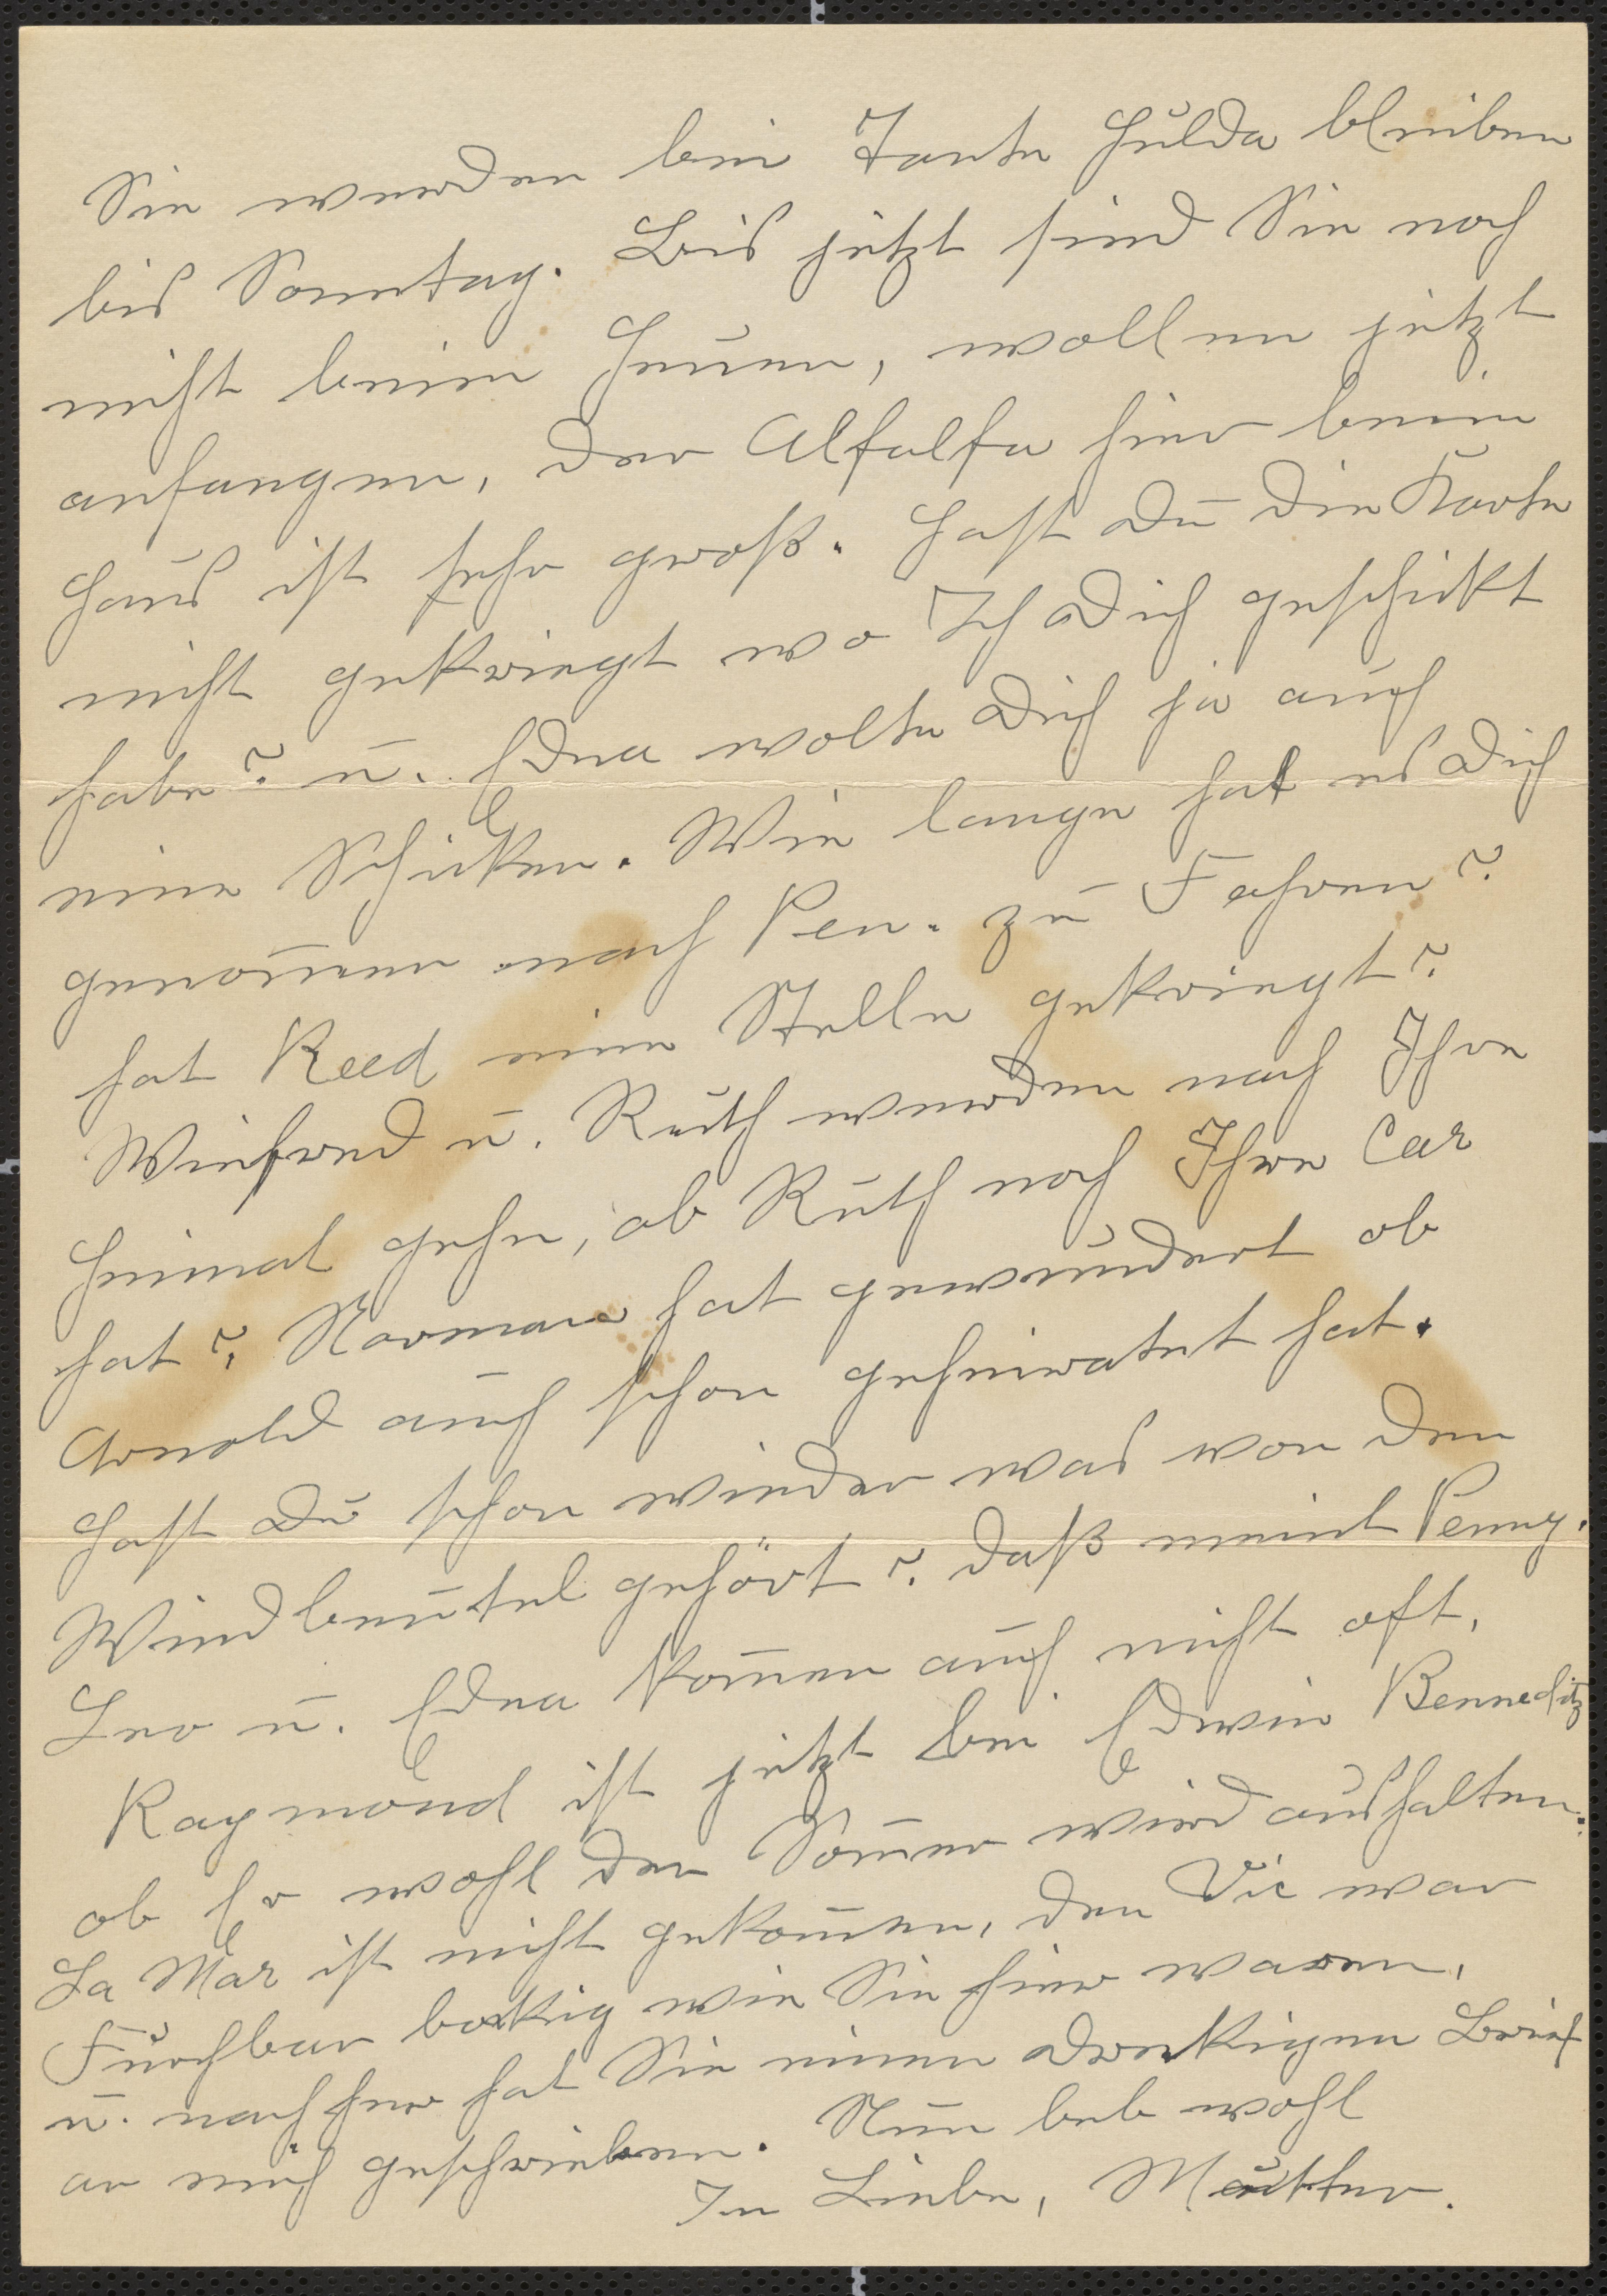 Sie werden bei Tante Hulda bleiben
bis Sonntag. Bis jetzt sind Sie noch
nicht beim Heuen, wollen jetzt
anfangen, der Alfalfa hier beim
Haus ist sehr groß. Hast du die Karte
nicht gekriegt wo Ich dich geschickt
habe? u. Edna wolte dich ja auch
eine Schicken. Wie lange hat es dich
genom̄en nach Pen. zu Fahren?
hat Reed eine Stelle gekriegt?
Winfred u. Ruth werden nach Ihre
Heimat gehn, ob Ruth noch Ihre Car
hat? Norman hat gewundert ob
Arnold auch schon geheiratet hat.
Hast du schon wieder was von den
Windbeutel gehört? daß meint Penny.
Leo u. Edna kom̄en auch nicht oft,
Raymond ist jetzt bei Edwin Benneditz
ob Er wohl den Som̄er wird aushalten.
La Mar ist nicht gekom̄en, den Vic war
Fürchbar bokig wie Sie hier waren,
u. nachher hat Sie einen dreckigen Brief
an mich geschrieben. Nun leb wohl
In Liebe, Mutter.